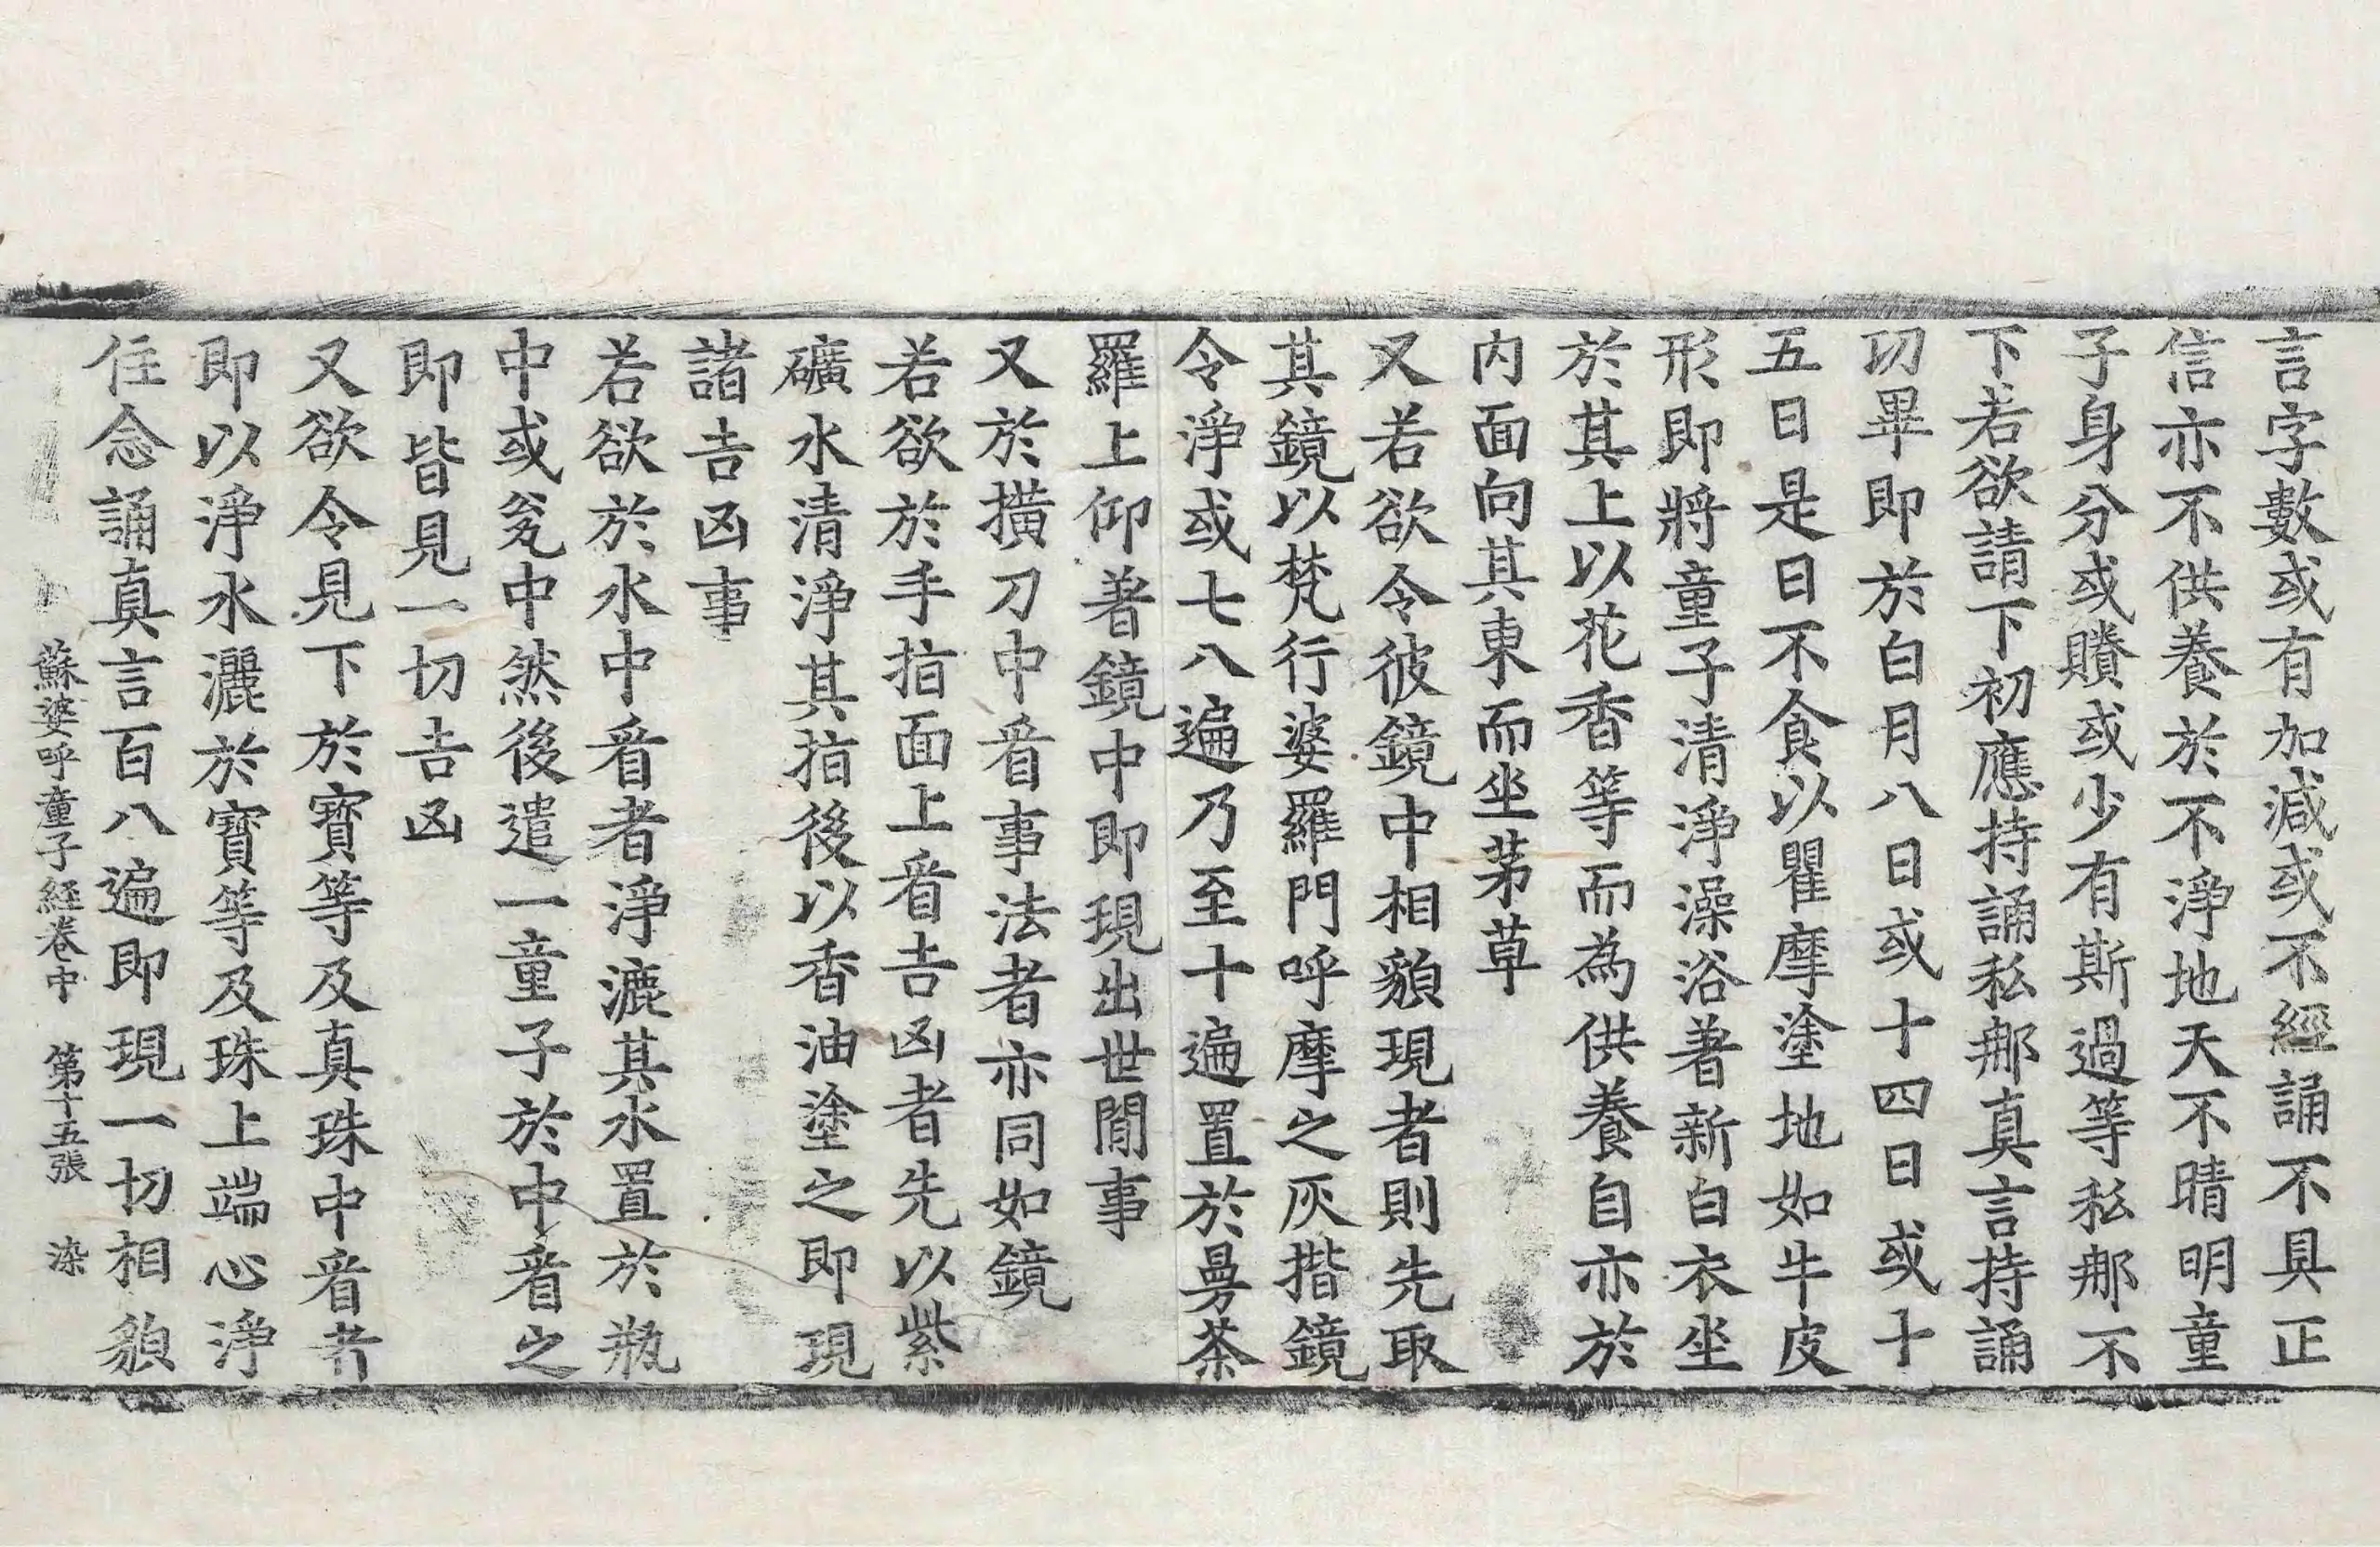 言字數或有加減或不經誦不具正
信亦不供養於不淨地天不晴明童
子身分或賸或少有斯過等私那不
下若欲請下初應持誦私那真言持誦
切畢即於白月八日或十四日或十
五日是日不食以瞿摩塗地如牛皮
形即將童子清淨澡浴著新白衣坐
於其上以花香等而為供養自亦於
內面向其東而坐茅草
又若欲令彼鏡中相貌現者則先取
其鏡以梵行婆羅門呼摩之灰揩鏡
令淨或七八遍乃至十遍置於曼荼
羅上仰著鏡中即現出世間事
又於撗刀中看事法者亦同如鏡
若欲於手指面上看吉凶者先以紫
礦水清淨其指後以香油塗之即現
諸吉凶事
若欲於水中看者淨漉其水置於瓶
中或瓮中然後遣一童子於中看之
即皆見一切吉凶
又欲令見下於寶等及真珠中看者
即以淨水灑於寶等及珠上端心淨
住念誦真言百八遍即現一切相貌
蘇婆呼童子經卷中 第十五張 染